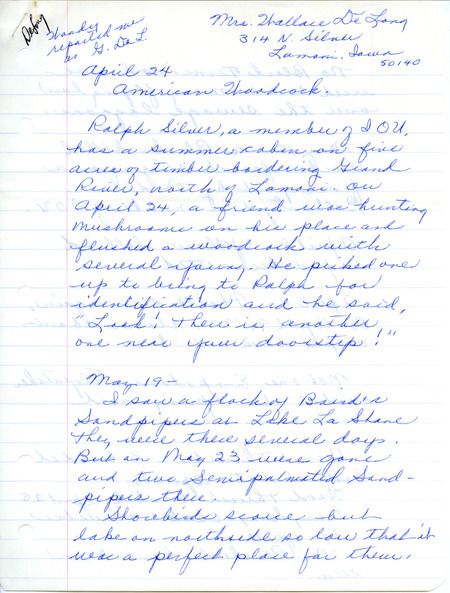 DeLong
Woody
reported me
as G. De L.
Mrs. Wallace De Long
314 N. Silver
Lamoni, Iowa
50140
April 24
American Woodcock.
Ralph Silver, a member of IOU,
has a summer cabin on five
acres of timber bordering Grand
River, north of Lamoni. On
April 24, a friend was hunting
mushrooms on his place and
flushed a woodcock with
several young. He picked one
up to bring to Ralph for
identification and he said,
"Look! There is another
one near your doorstep!"
May 19-
I saw a flock of Baird's
Sandpipers at Lake La Shane
They were there several days.
But on May 23 were gone
and two Semipalmated Sand-
pipers there.
Shorebirds scarce but
lake on northside so low that it
was a perfect place for them.